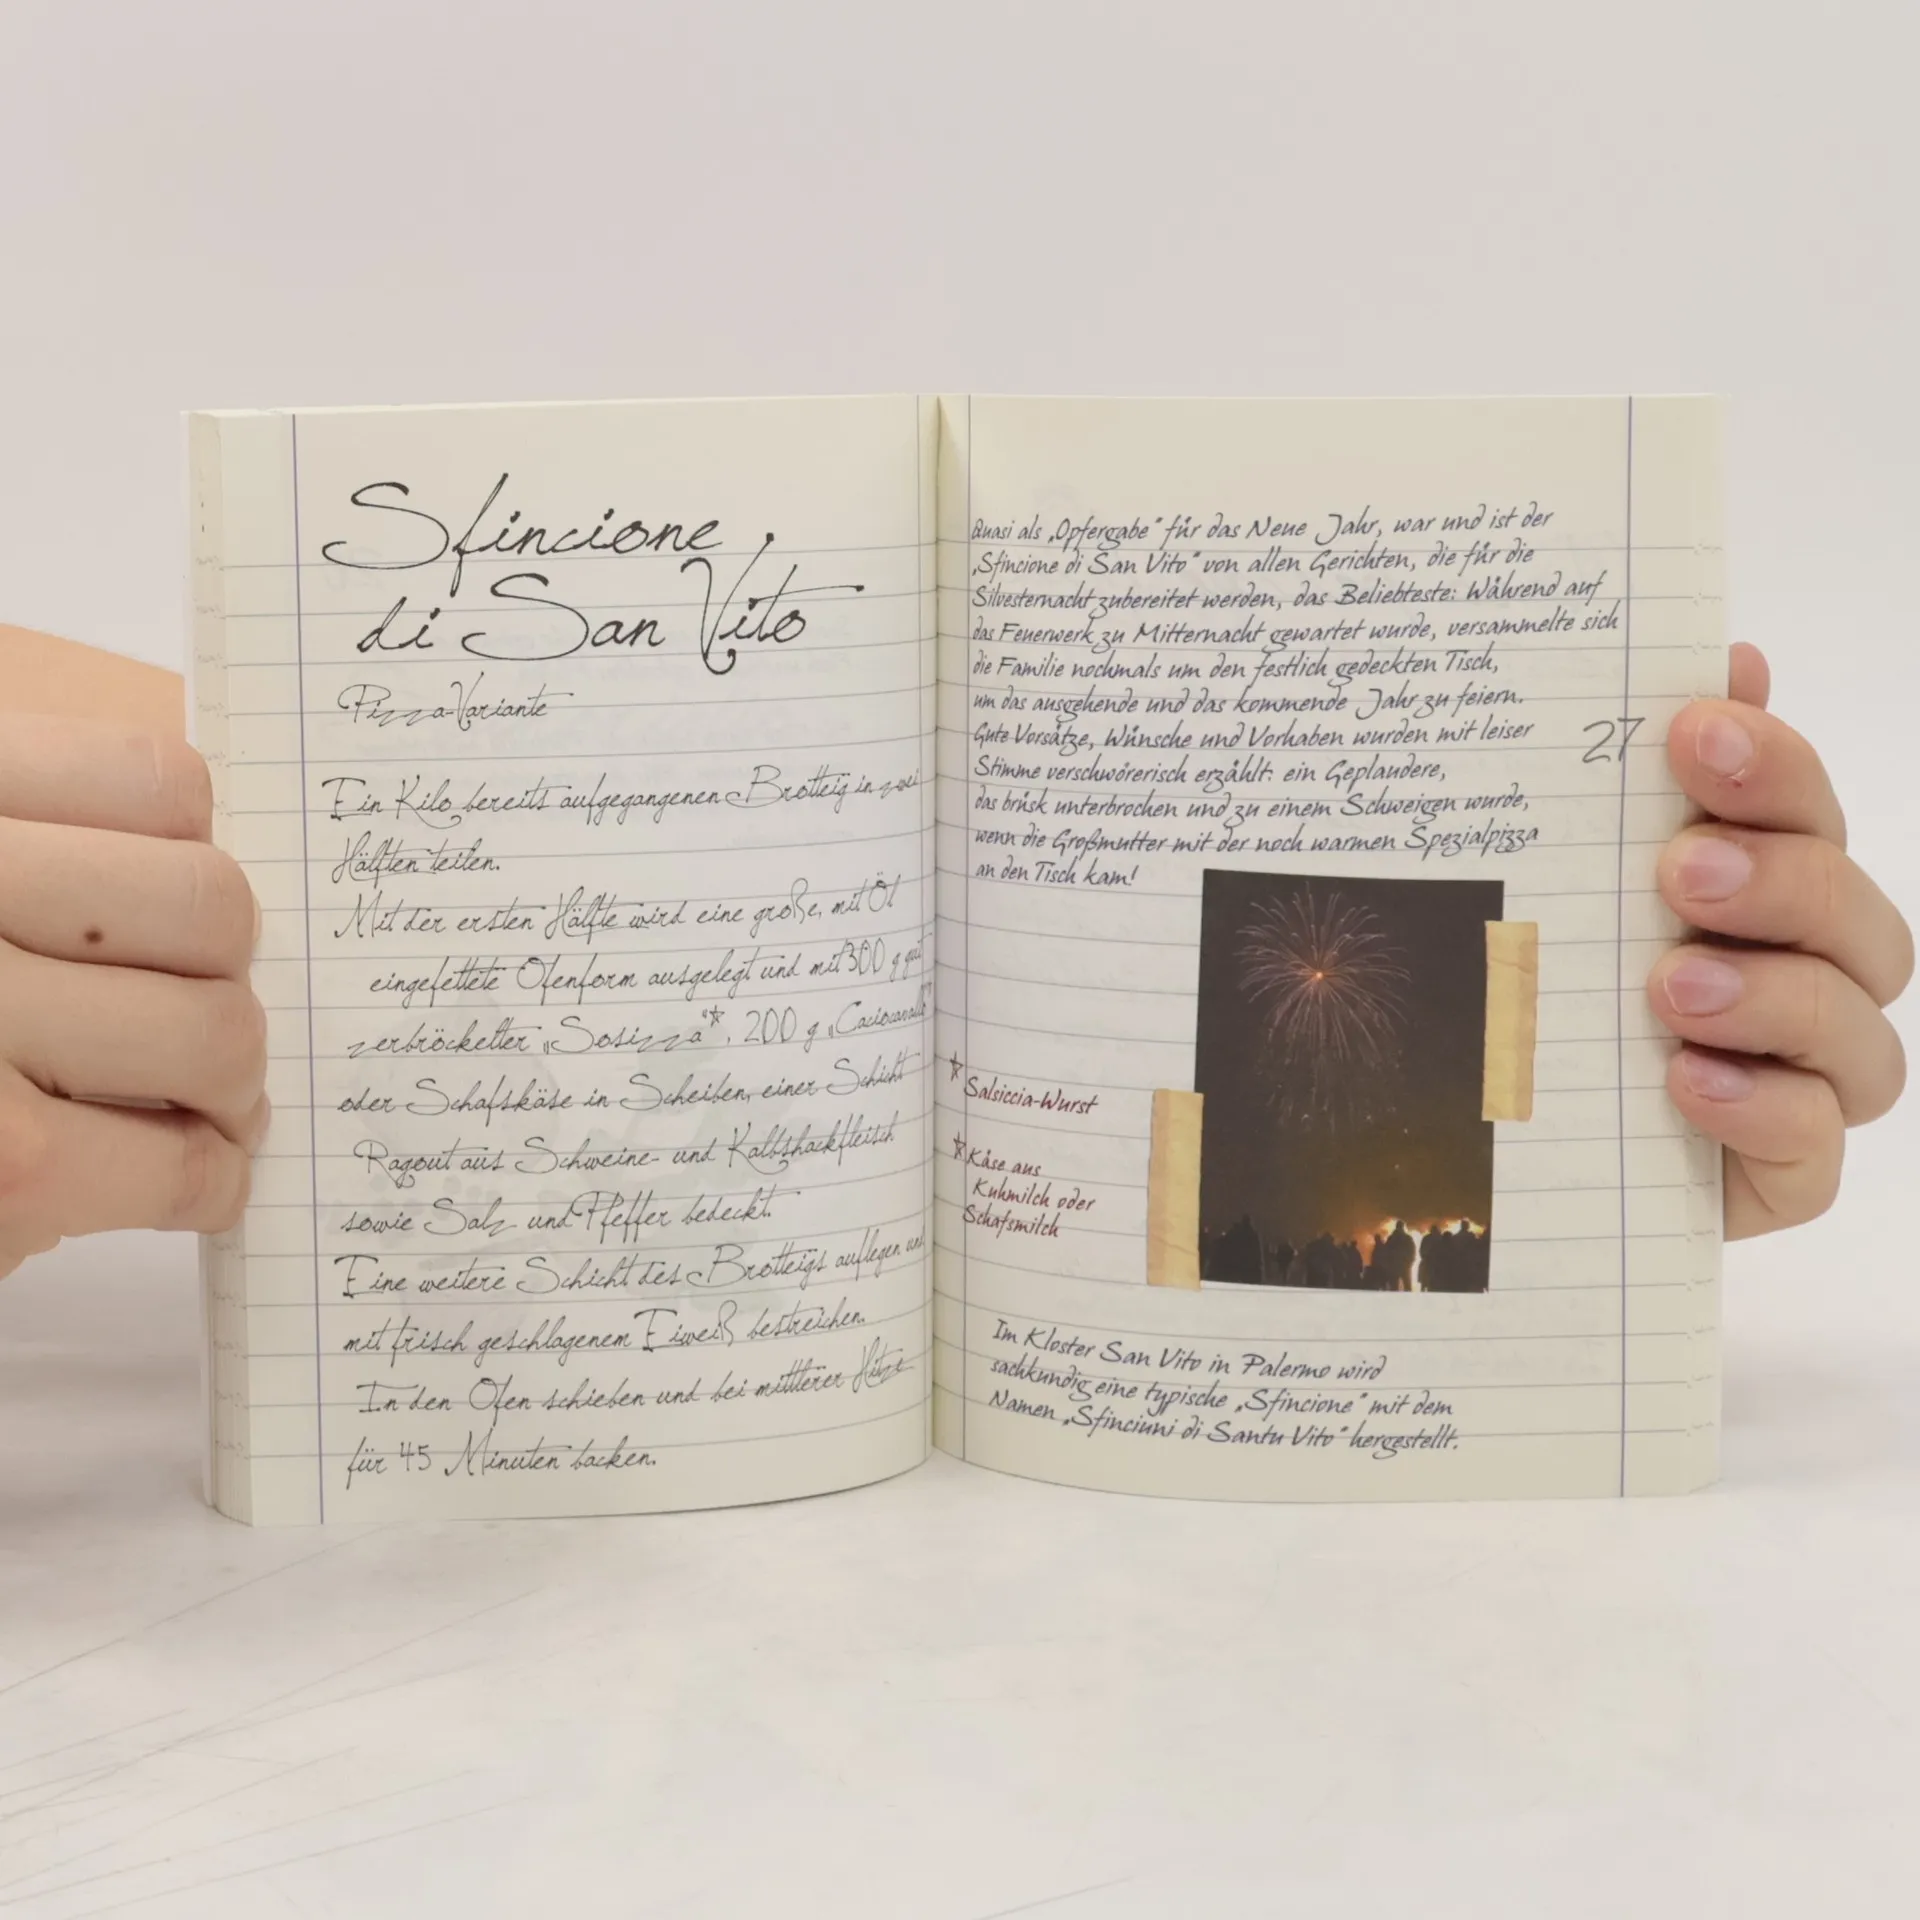 Sfincione
di San Vito
Pizza-Variante
Ein Kilo bereits aufgegangenen Brotteig in zwei
Hälften teilen.
Mit der ersten Hälfte wird eine große, mit Öl
eingefettete Ofenform ausgelegt und mit 300 g gut
zerbröckelter „Sosizza"*, 200 g „Caciocavallo"
oder Schafskäse in Scheiben, einer Schicht
Ragout aus Schweine- und Kalbshackfleisch
sowie Salz und Pfeffer bedeckt.
Eine weitere Schicht des Brotteigs auflegen und
mit frisch geschlagenem Eiweiß bestreichen.
In den Ofen schieben und bei mittlerer Hitze
für 45 Minuten backen.
Quasi als „Opfergabe" für das Neue Jahr, war und ist der
„Sfincione di San Vito" von allen Gerichten, die für die
Silvesternacht zubereitet werden, das Beliebteste: Während auf
das Feuerwerk zu Mitternacht gewartet wurde, versammelte sich
die Familie nochmals um den festlich gedeckten Tisch,
um das ausgehende und das kommende Jahr zu feiern.
Gute Vorsätze, Wünsche und Vorhaben wurden mit leiser
Stimme verschwörerisch erzählt: ein Geplaudere,
das brüsk unterbrochen und zu einem Schweigen wurde,
wenn die Großmutter mit der noch warmen Spezialpizza
an den Tisch kam!
27
* Salsiccia-Wurst
* Käse aus
Kuhmilch oder
Schafsmilch
Im Kloster San Vito in Palermo wird
sachkundig eine typische „Sfincione" mit dem
Namen „Sfinciuni di Santu Vito" hergestellt.